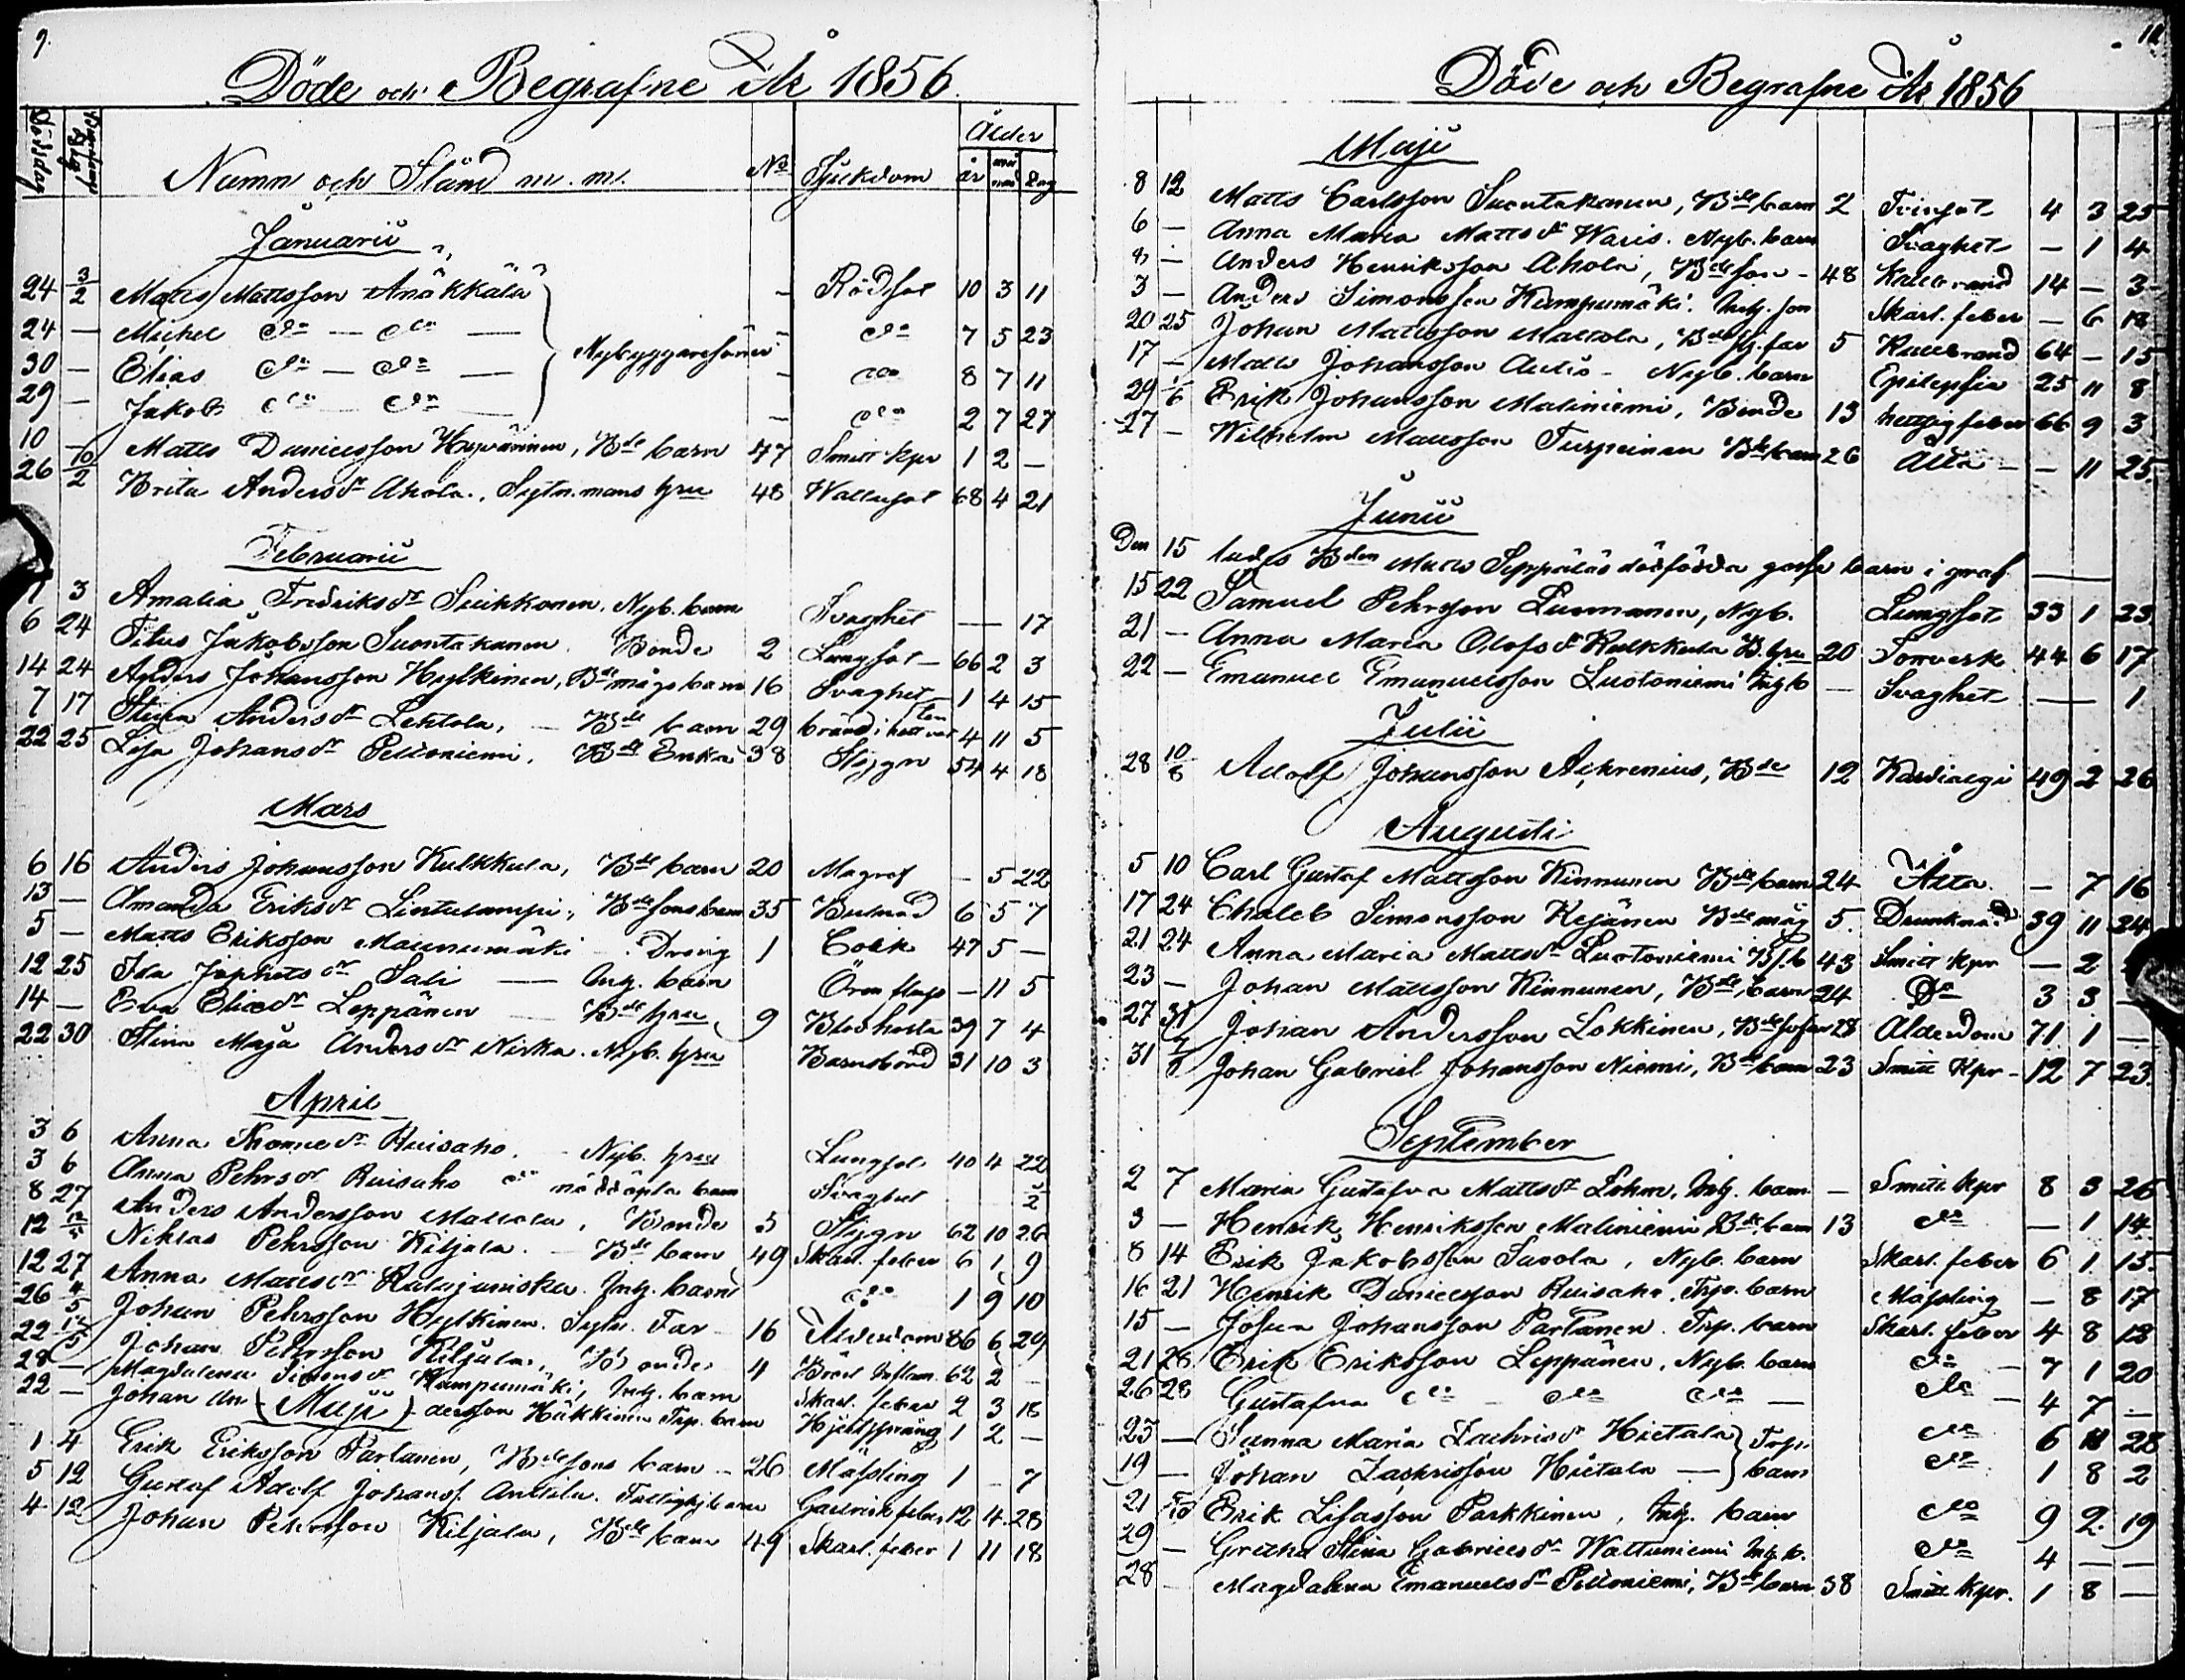 9.
Döde och Begrafne År 1856.
Dödsdag Begrafning dag Namn och Stånd m. m. No Sjukdom Ålder år månad dag
Januarii
24 3/2 Matts Mattsson Anäkkälä - Rödsot 10 3 11
24 — Michel do — do — Nybyggaresöner - do 7 5 23
30 — Elias do — do — - do 8 7 11
29 — Jakob do — do — - do 2 7 27
10 — Matts Danielsson Bde barn 47 Smitt kpr 1 2 —
26 10/2 Brita Andersdr Ahola, Sytn.mans hru 48 Wattusot 68 4 21
Februarii
1 3 Amalia Fredriksdr Sikkonen, Nyb. barn Svaghet — 17
6 24 Titus Jakobsson Suontakanen Bonde 2 Lungsot — 66 2 3
14 24 Anders Johansson Hylkinen, Bde mågs barn 16 Svaghet — 1 4 15
7 17 Stina Andersdr Lehtola, — Bde barn 29 bränd i hett vatten 4 11 5
22 25 Lisa Johansdr Peltoniemi, Bde Enka 38 Stygn 54 4 18
Mars
6 16 Anders Johansson Kulkkula, Bde barn 20 Magref — 5 22
13 — Amanda Eriksdr Lintulampi, Bde sons barn 35 Bulnad 6 5 7
5 — Matts Eriksson Maunumäki — Dreng 1 Colik 47 5 —
12 25 Ida Japhetsdr Sali — Inh. barn Öron flusr — 11 5
14 — Eva Eliædr Leppänen — Bde hru 9 Blodhosta 39 7 4
22 30 Stina Maja Andersdr Niska. Nyb. hru Barnsbörd 31 10 3
April
3 6 Anna Thomædr Ruisaho. - Nyb. hru Lungsot 40 4 22
3 6 Anna Pehrsdr Ruisaho do nöddöpta barn Svaghet 2
8 27 Anders Andersson Mattola, Bonde 5 Stygn 62 10 26
12 12/5 Niklas Pehrsson Kiljala. — Bde barn 49 Skarl. feber 6 1 9
12 27 Anna Mattsdr Inh. barn do 1 9 10
26 4/5 Johan Pehrsson Hylkinen. Sytn. Far 16 Ålderdom 86 6 29
22 Johan Pehrsson Kiljala, Bonde 4 Bröst Inflam. 62 2 —
28 — Magdalena Simonsdr Kumpumäki, Inh. barn Skarl. feber 2 3 18
22 — Johan An (Maji) dersson Häkkinen Trp. barn Hjertsprång 1 2 —
1 4 Erik Eriksson Partanen, Bde sons barn — 26 Mässling 1 — 7
5 12 Gustaf Adolf Johanss. Anttila. Fattighj barn feber 12 4 28
4 12 Johan Pehrsson Kiljala, Bde barn 49 Skarl. feber 1 11 18
10
Döde och Begrafne År 1856
Maji
8 12 Matts Carlsson Suontakanen, Bde barn 2 Tvinsot 4 3 25
6 — Anna Maria Mattsdr Waris. Nyb. barn Svaghet — 1 4
8 — Anders Henriksson Ahola, Bde son - 48 Kallbrand 14 — 3
3 — Anders Simonsson Kumpumäki. Inh. son Skarl. feber — 6 18
20 25 Johan Mattsson Mattola, Bde sv. far 5 Kallbrand 64 — 15
17 — Matts Johansson Autio — Nyb. barn Epilepsia 25 11 8
29 1/6 Erik Johansson Maliniemi, Bonde 13 hettsig feber 66 9 3
27 — Wilhelm Mattsson Turpeinen Bde barn 26 Ålta — — 11 25
Junii
Den 15 lades Bden Matts Seppäläs dödfödda gosse barn i graf —
15 22 Samuel Pehrsson Lusmanen, Nyb. Lungsot 33 1 23
21 — Anna Maria Olofsdr Kulkkula B. hru 20 Torrverk 44 6 17
22 — Emanuel Emanuelsson Luotoniemi Inh b — Svaghet — 1
Julii
28 10/8 Adolf Johansson Achrenius, Bde 12 Kardialgi 49 2 26
Augusti
5 10 Carl Gustaf Mattsson Kinnunen Bde barn 24 Älta — 7 16
17 24 Chaleb Simonsson Kejänen Bde måg 5 Drunknad 39 11 24
21 24 Anna Maria Mattsdr Luotoniemi B. b 43 Smitt kpr — 2
23 — Johan Mattsson Kinnunen, Bde barn 24 Do 3 3 —
27 31 Johan Andersson Lokkinen, Bde 28 Ålderdom 71 1 —
31 7/9 Johan Gabriel Johansson Niemi, Bde barn 23 Smitt Kpr - 12 7 23
September
2 7 Maria Gustafva Mattsdr Lohm, Inh. barn — Smitt kpr 8 3 26
3 — Henrik Henriksson Maliniemi Bde barn 13 do — 1 14
8 14 Erik Jakobsson Savola, Nyb. barn Skarl. feber 6 1 15
16 21 Henrik Danielsson Ruisaho Trp. barn Mässling — 8 17
15 — Josua Johansson Partanen. Trp. barn Skarl. feber 4 8 18
21 28 Erik Eriksson Leppänen, Nyb. barn do — 7 1 20
26 28 Gustafva do — do do — do — 4 7 —
23 — Sanna Maria Zachrisdr Hietala Trp. do 6 11 28
19 — Johan Zachrisson Hietala — barn do 1 8 2
21 Erik Lisasson Parkkinen, Inh. barn do 9 2 19
29 — Gretha Stina Gabrielsdr Wattuniemi Inh. b. do 4 — —
28 — Magdalena Emanuelsdr Peltoniemi, Bde barn 38 Smitt kpr. 1 8 —